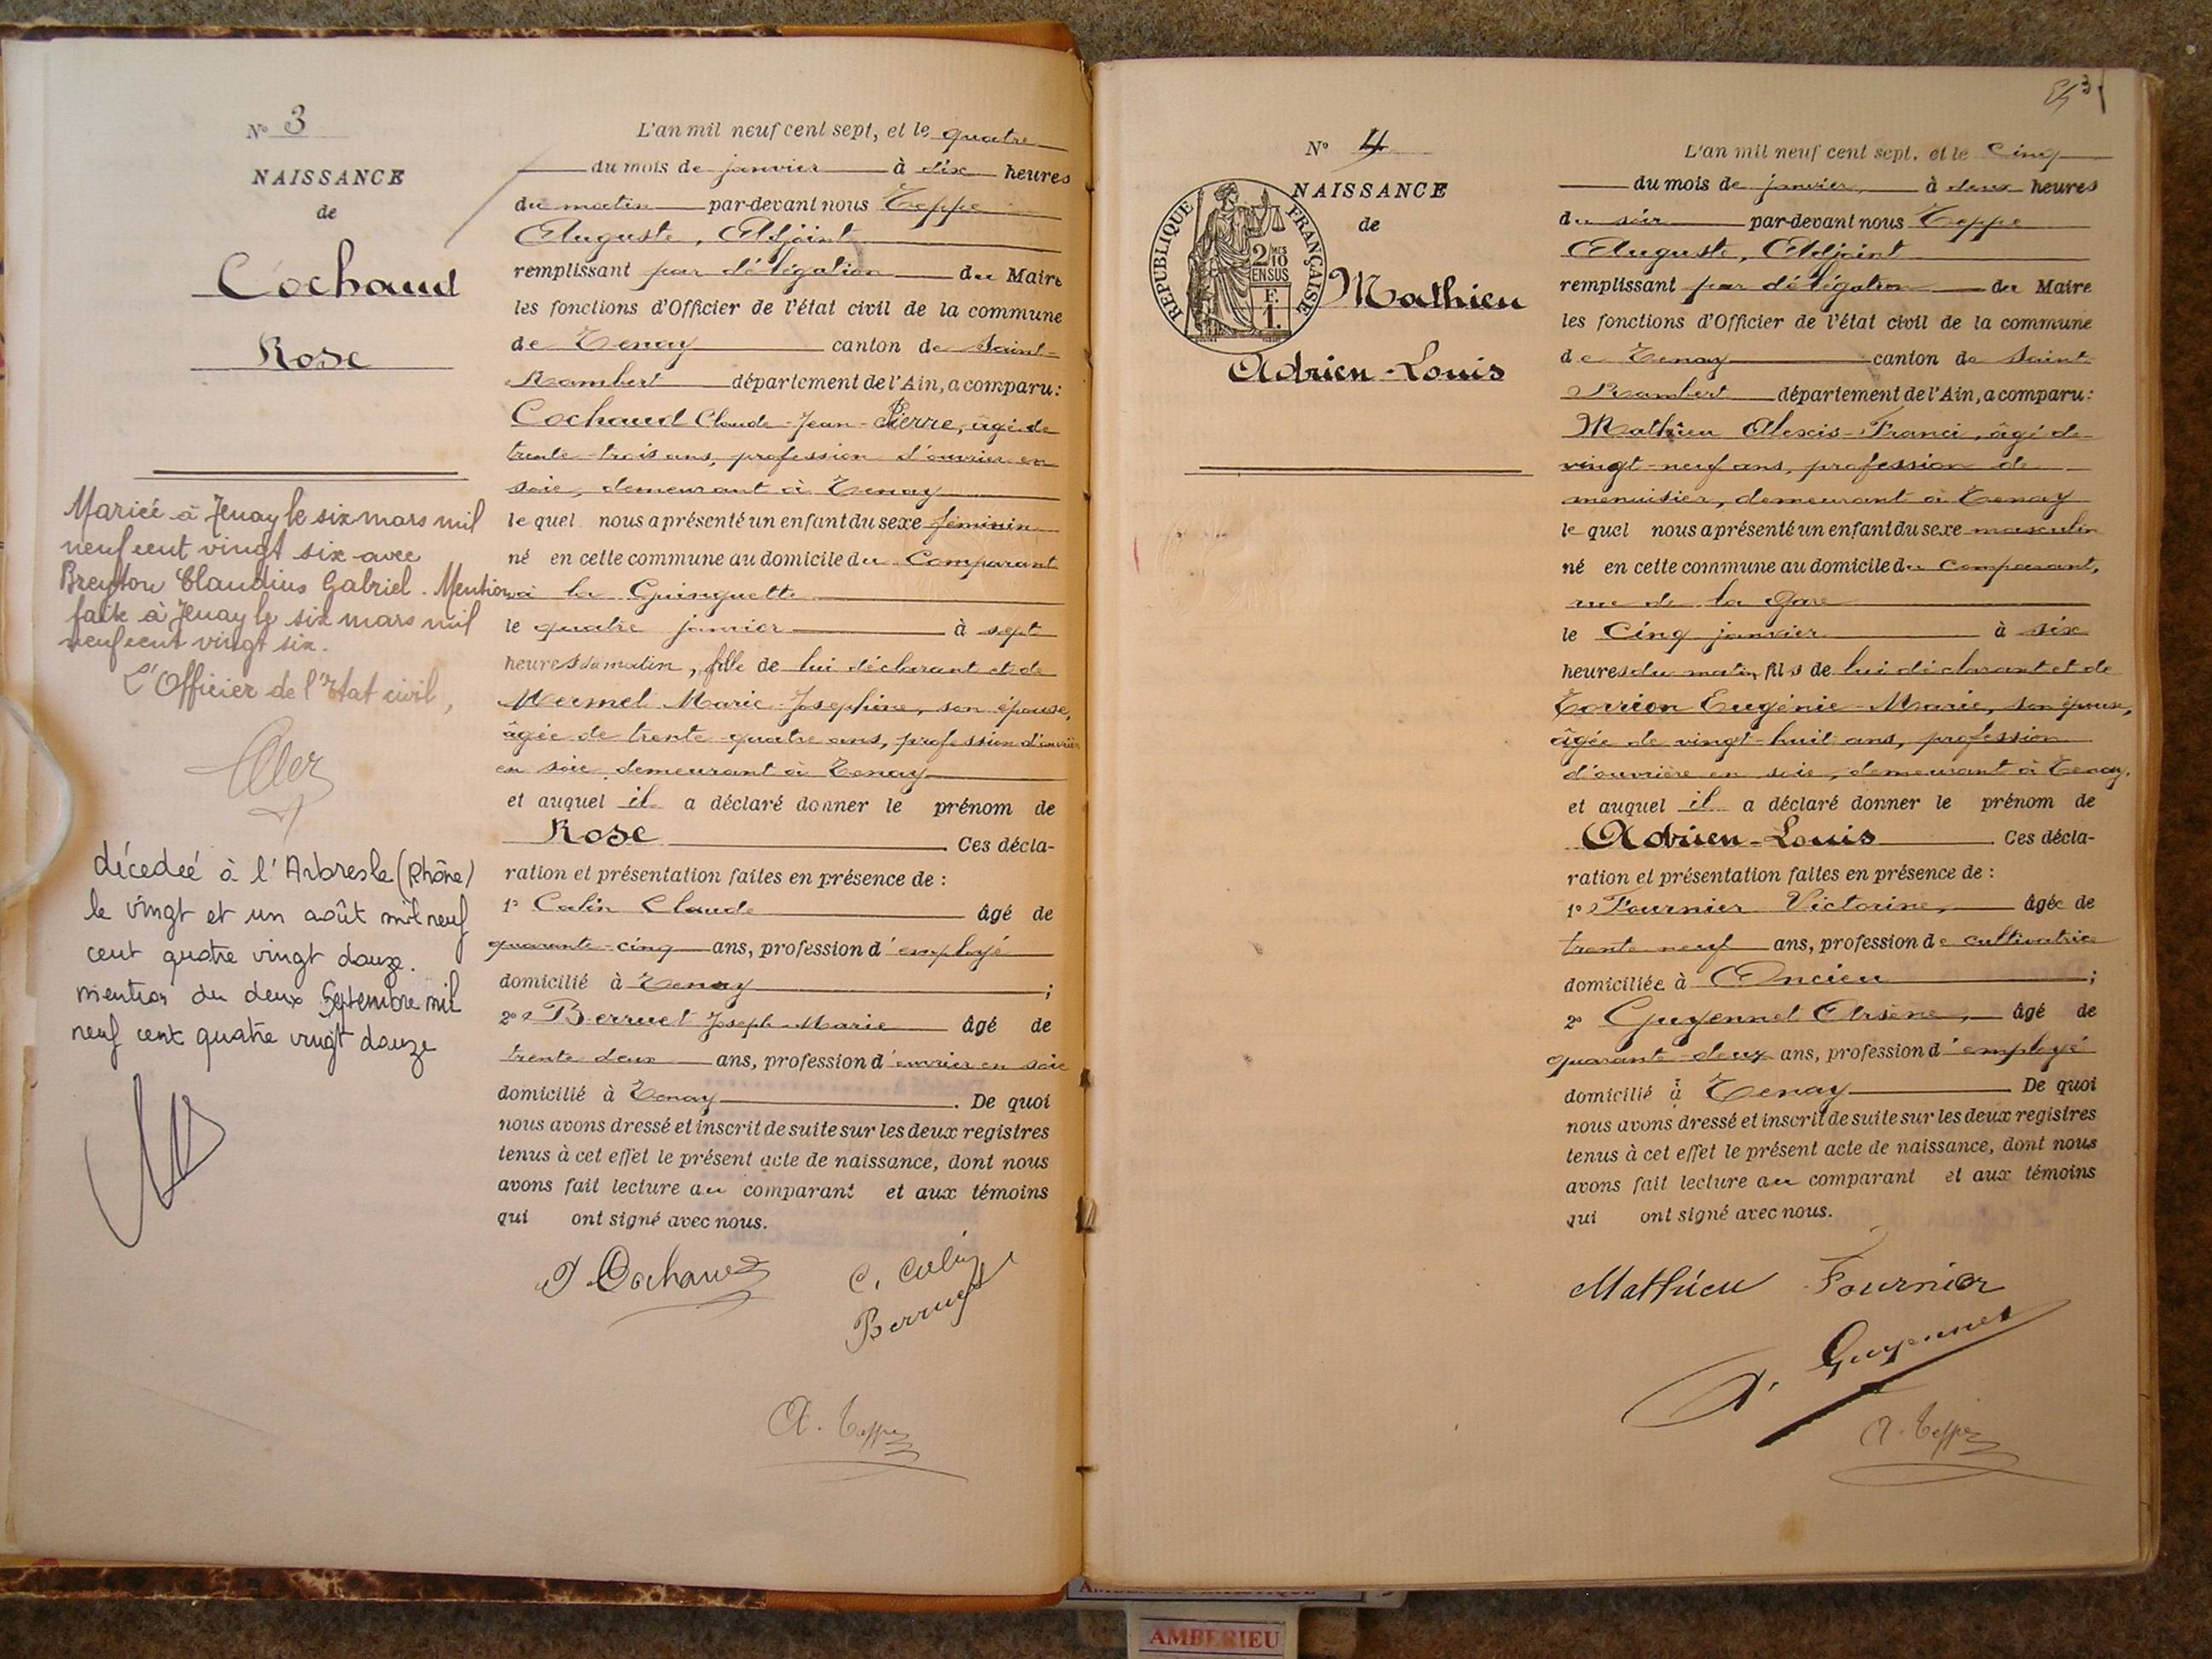 N° 3
NAISSANCE
de
Cochaud
Rose
Mariée à Tenay le six mars mil
neuf cent vingt six avec
Breyton Claudius Gabriel. Mention
faite à Tenay le six mars mil
neuf cent vingt six.
L'Officier de l'Etat civil,
décedeé à l'Arbresle (Rhône)
le vingt et un août mil neuf
cent quatre vingt douze.
mention du deux Septembre mil
neuf cent quatre vingt douze
L'an mil neuf cent sept, et le quatre
du mois de janvier à dix heures
du matin par-devant nous Teppe
Auguste, Adjoint
remplissant par délégation du Maire
les fonctions d'Officier de l'état civil de la commune
de Tenay canton de Saint-
Rambert département de l'Ain, a comparu:
Cochaud Claude-Jean-Pierre, âgé de
trente-trois ans, profession d'ouvrier en
soie, demeurant à Tenay
le quel nous a présenté un enfant du sexe féminin
né en cette commune au domicile du Comparant
à la Guinguette
le quatre janvier à sept
heures du matin, fille de lui déclarant et de
Mermet Marie-Joséphine, son épouse,
âgée de trente-quatre ans, profession d'ouvrière
en soie, demeurant à Tenay
et auquel il a déclaré donner le prénom de
Rose Ces décla-
ration et présentation faites en présence de :
1° Colin Claude âgé de
quarante-cinq ans, profession d'employé
domicilié à Tenay ;
2° Berruet Joseph-Marie âgé de
trente deux ans, profession d'ouvrier en soie
domicilié à Tenay. De quoi
nous avons dressé et inscrit de suite sur les deux registres
tenus à cet effet le présent acte de naissance, dont nous
avons fait lecture au comparant et aux témoins
qui ont signé avec nous.
Cochaud C. Colin
Berruet
A. Teppe
N° 4
NAISSANCE
de
RÉPUBLIQUE FRANÇAISE
2/10 MES
EN SUS
F.
1.
Mathieu
Adrien-Louis
3
L'an mil neuf cent sept, et le Cinq
du mois de janvier à deux heures
du soir par-devant nous Teppe
Auguste, Adjoint
remplissant par délégation du Maire
les fonctions d'Officier de l'état civil de la commune
de Tenay canton de Saint-
Rambert département de l'Ain, a comparu:
Mathieu Alexis-Franci, âgé de
vingt-neuf ans, profession de
menuisier, demeurant à Tenay
le quel nous a présenté un enfant du sexe masculin
né en cette commune au domicile du comparant,
rue de la Gare
le Cinq janvier à six
heures du matin, fils de lui déclarant et de
Eugénie-Marie, son épouse,
âgée de vingt-huit ans, profession
d'ouvrière en soie, demeurant à Tenay.
et auquel il a déclaré donner le prénom de
Adrien-Louis Ces décla-
ration et présentation faites en présence de :
1° Fournier Victorine, âgée de
trente neuf ans, profession de cultivatrice
domiciliée à Oncieu ;
2° Guyennet Arsène, âgé de
quarante-deux ans, profession d'employé
domicilié à Tenay De quoi
nous avons dressé et inscrit de suite sur les deux registres
tenus à cet effet le présent acte de naissance, dont nous
avons fait lecture au comparant et aux témoins
qui ont signé avec nous.
Mathieu Fournier
A. Guyennet
A. Teppe
AMBERIEU